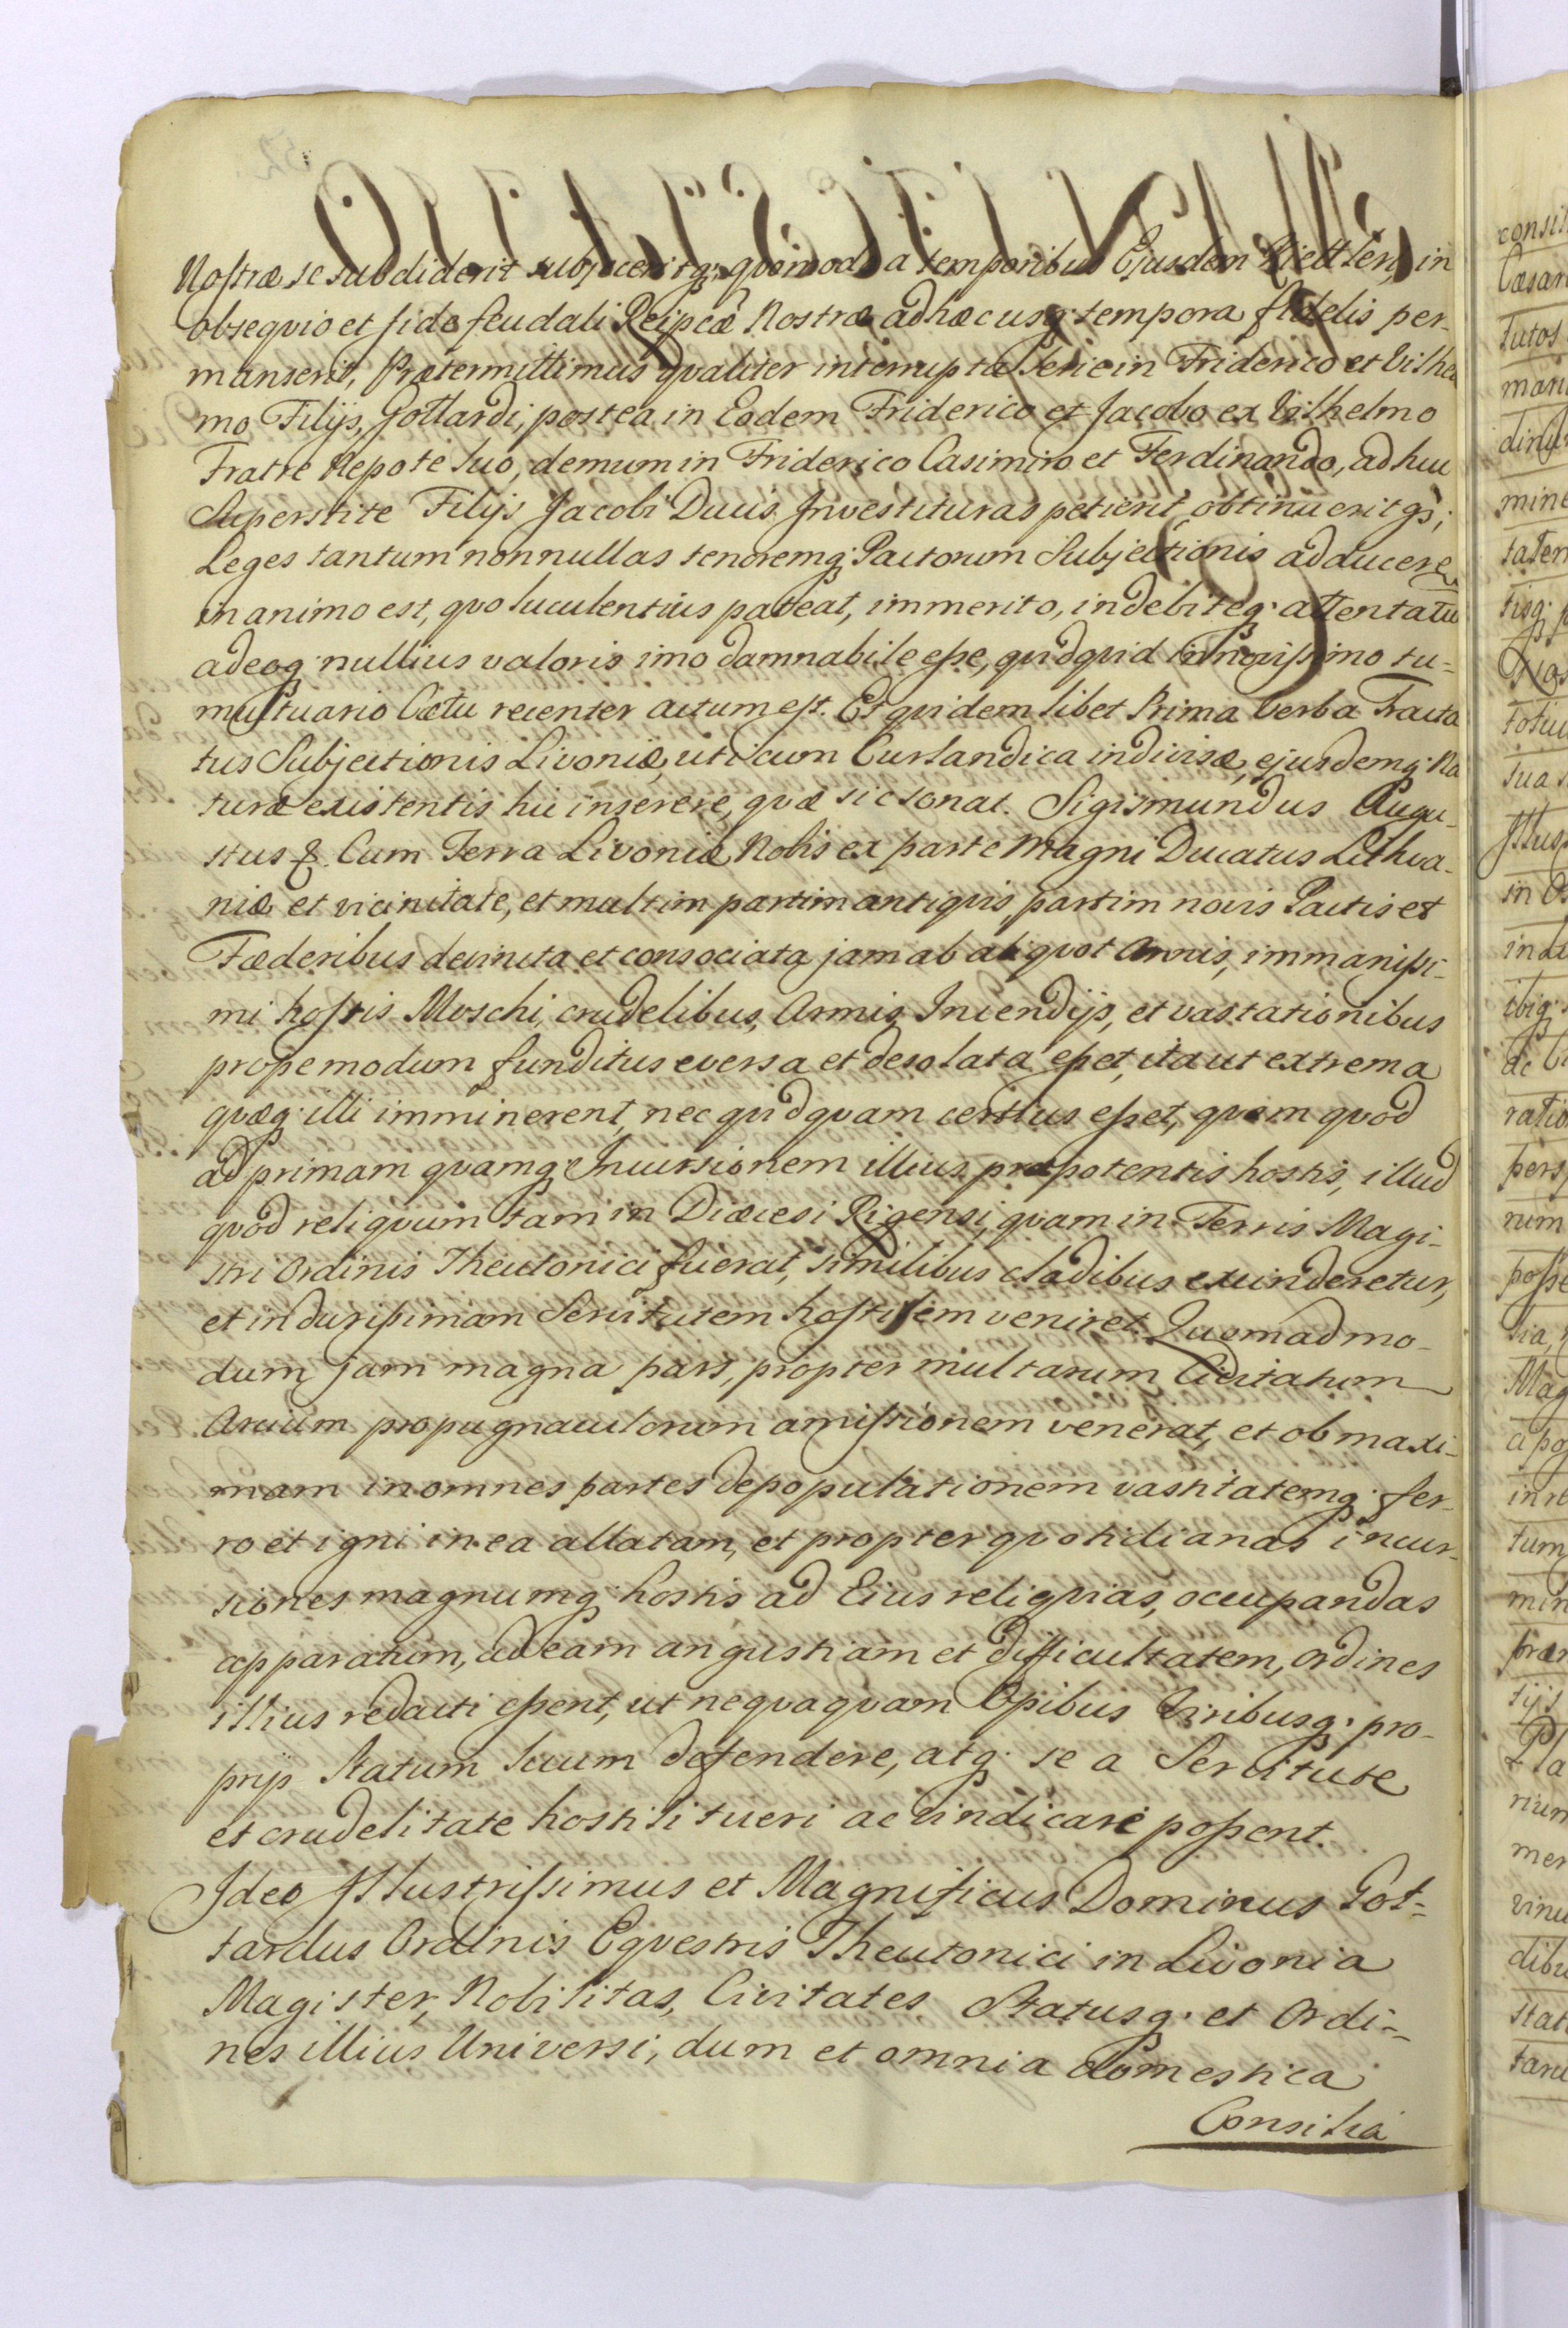 Nostræ se subdiderit subjeceritq; quomodo a temporibus Ejusdem Kiettler, in
obseqvio et fide feudali Reipcæ Nostræ adhæc usq; tempora fidelis per-
manserit, Prætermittimus qvaliter interrupta Serie in Friderico et Vilhel
mo Filijs, Gottardi, postea in Eodem Friderico et Jacobo ex Vilhelmo
Fratre Nepote suo, demum in Friderico Casimiro et Ferdinando, adhuc
Superstite Filijs Jacobi Ducis Investituras petierit, obtinuerit qs;
Leges tantum nonnullas tenoremq; Pactorum Subjectionis adducere
in animo est, qvo luculentius pateat, immerito, indebiteq; attentatu
adeoq; nullius valoris imo damnabile esse, qvidqvid in novissimo tu-
multuario Cœtu recenter actum est. Et qvidem libet Prima Verba Tracta
tus Subjectionis Livoniæ, uti cum Curlandica indivisæ, ejusdemq; Na
turæ existentis hic inserere, qvæ sic sonat. Sigismundus Augu-
stus &. Cum Terra Livoniæ Nobis ex parte Magni Ducatus Lithva-
niæ et vicinitate, et multim partim antiqvis partim novis Pactis et
Fæderibus devincta et consociata jam ab aliqvot Annis, immanissi-
mi hostis Moschi, crudelibus, Armis, Incendijs, et vastationibus
propemodum funditus eversa et desolata esset, ita ut extrema
qvæq; illi imminerent, nec qvidqvam certius esset, qvam qvod
ad primam qvamq; Incursionem illius præpotentis hostis, illud
qvod reliqvum tam in Diæcesi Rigensi, qvam in Terris Magi-
stri Ordinis Theutonici fuerat, similibus cladibus excinderetur,
et in durissimam Servitutem hostilem veniret. Quemadmo-
dum jam magna pars, propter multarum Civitatum
Arcium propugnaculorum amissionem venerat, et ob maxi-
mam in omnes partes depopulationem vastitatemq; fer-
ro et igni in ea allatam, et propter qvotidianas incur-
siones magnumq; hostis ad Eius reliqvias, occupandas
apparatum, ad eam angustiam et difficultatem, Ordines
illius redacti essent, ut neqvaqvam Opibus Viribusq; pro-
prijs Statum Suum defendere, atq; se a Servitute
et crudelitate hostili tueri ac vindicare possent.
Ideo Illustrissimus et Magnificus Dominus Got-
tardus Ordinis Eqvestris Theutonici in Livonia
Magister, Nobilitas, Civitates Statusq; et Ordi-
nes illius Universi, dum et omnia domestica
Consilia